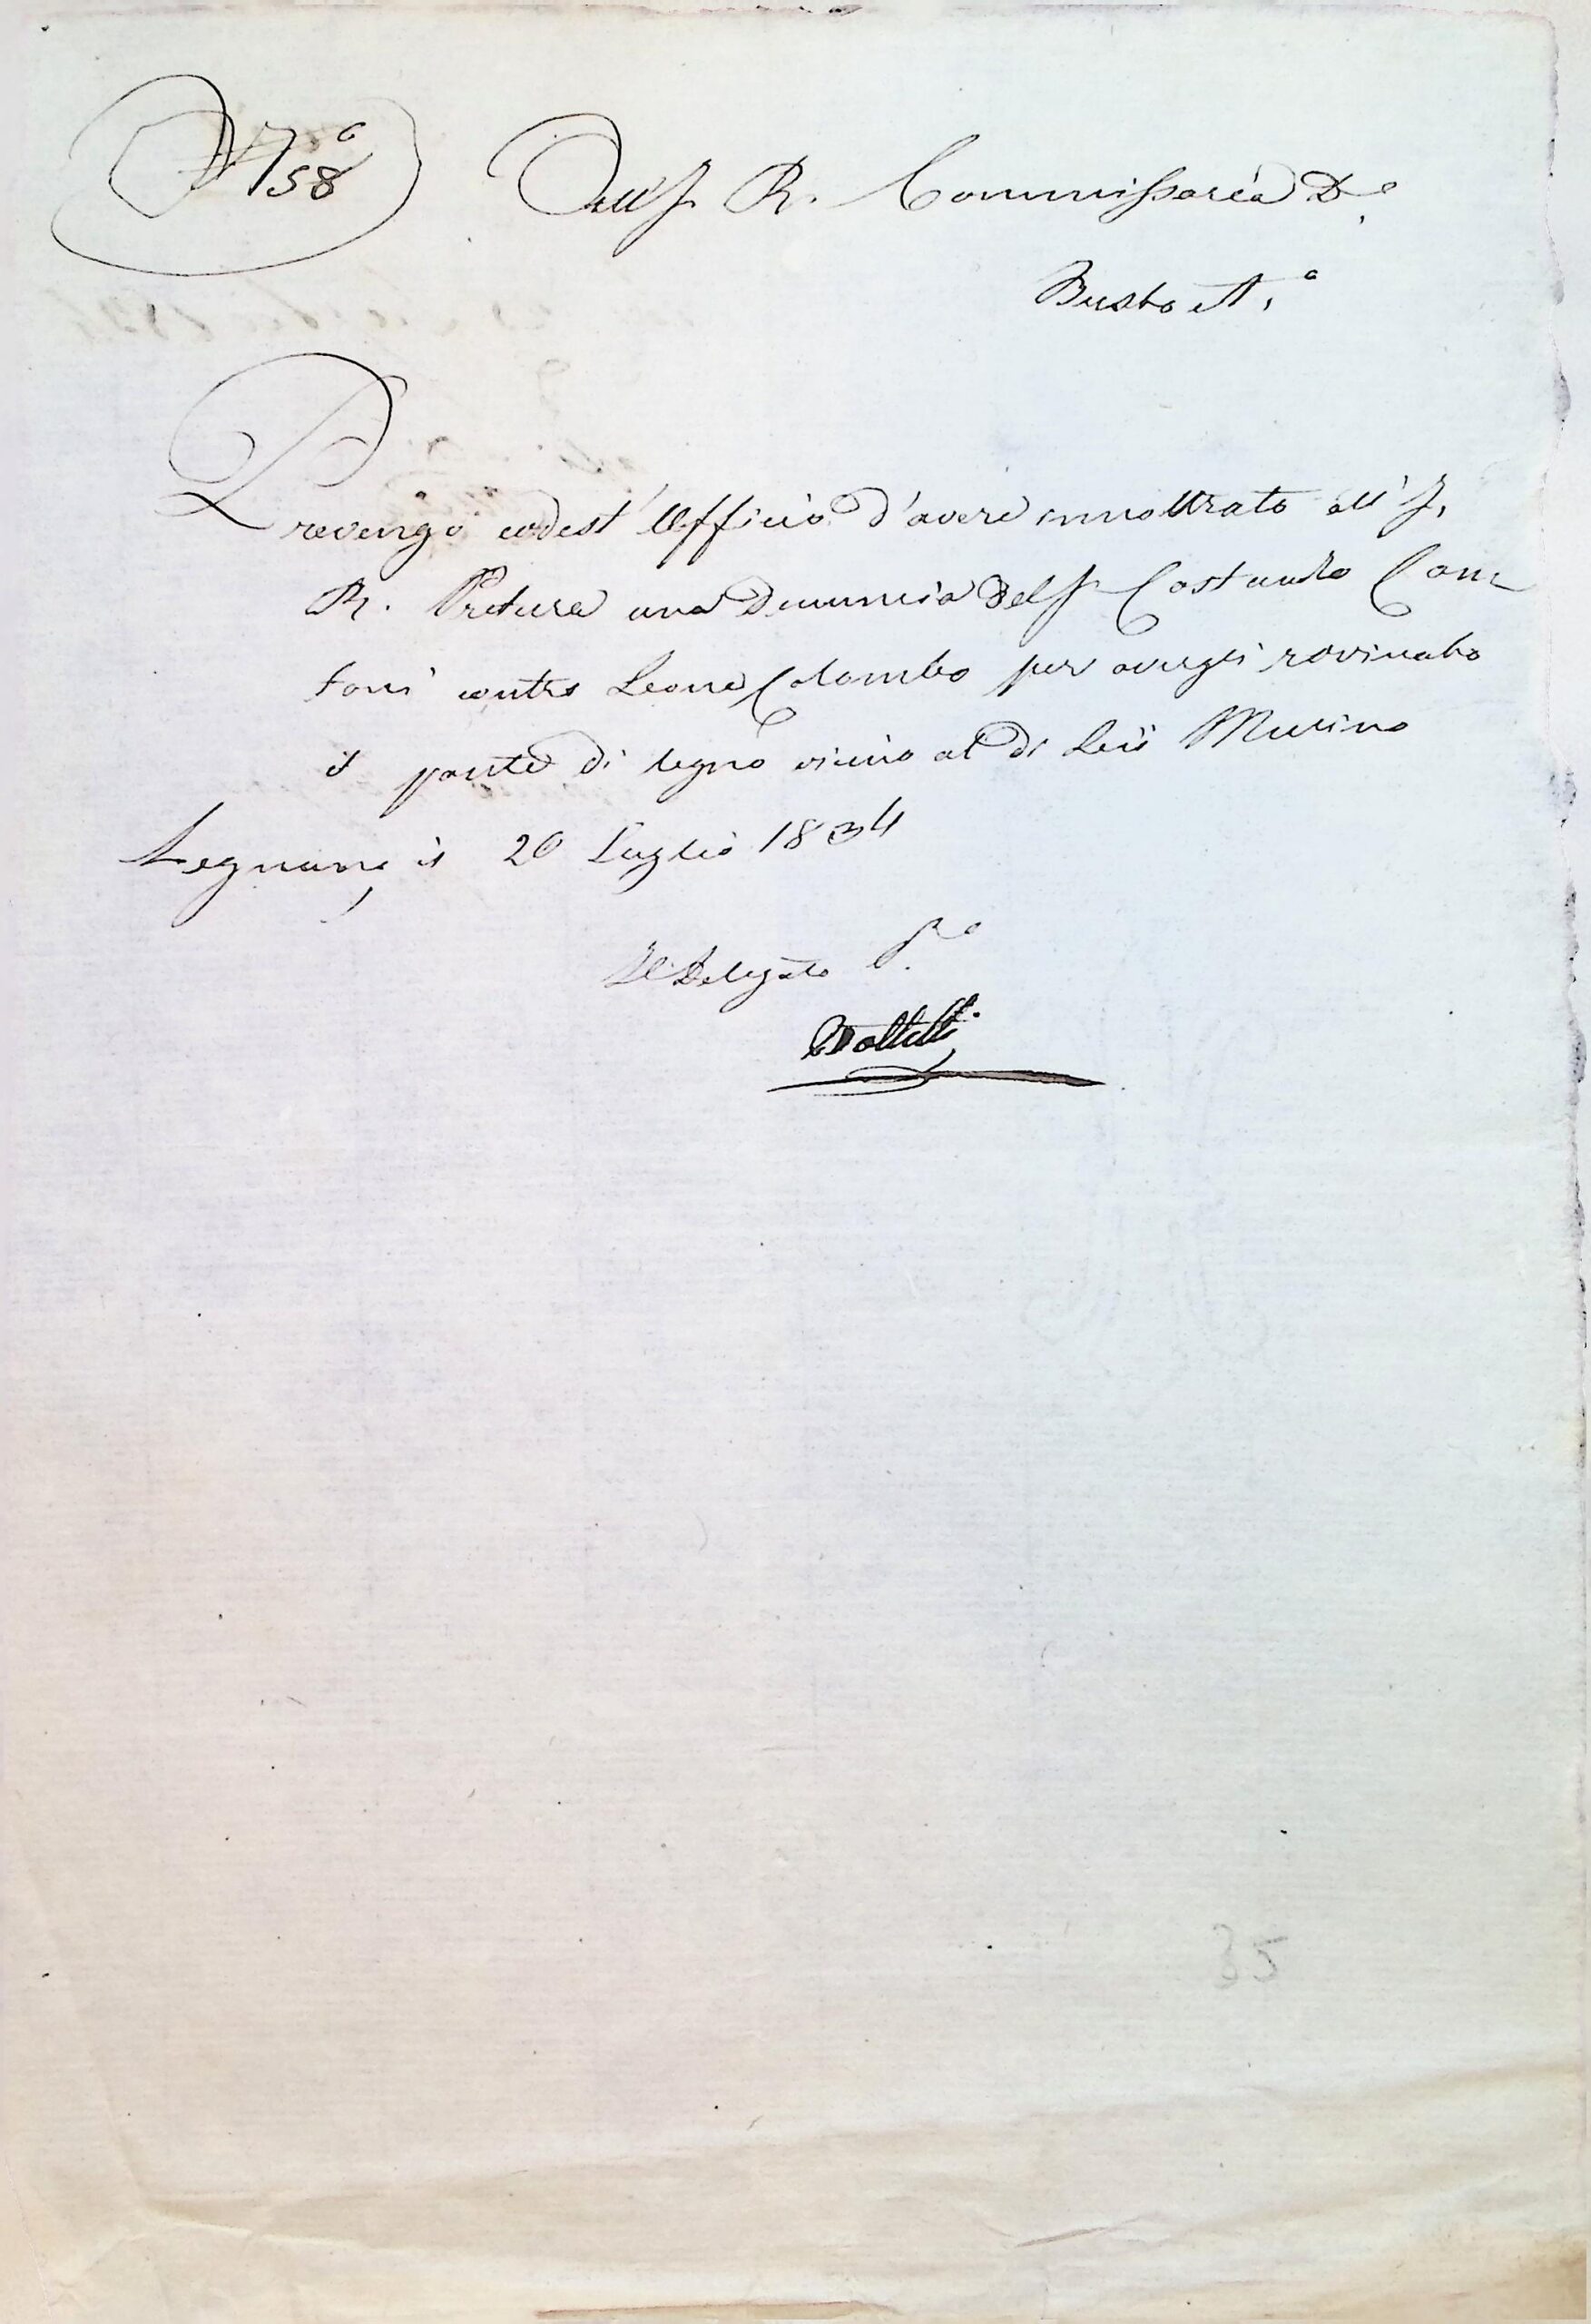 N° 158
All' I. R. Commissaria D.e
Busto A.°
Prevengo codest' Ufficio d'avere innoltrato all' I.
R. Preture una Denuncia del S.r Costanzo Can=
toni contro Leone Colombo per avergli rovinato
il ponte di legno vicino al di Lui Murino
Legnano, il 20 Luglio 1834
Il Delegato P.co
35